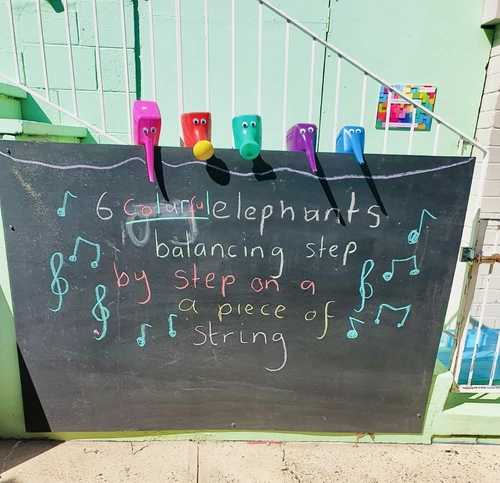 6 colarful elephants
balancing step
by step on a
a piece of
string